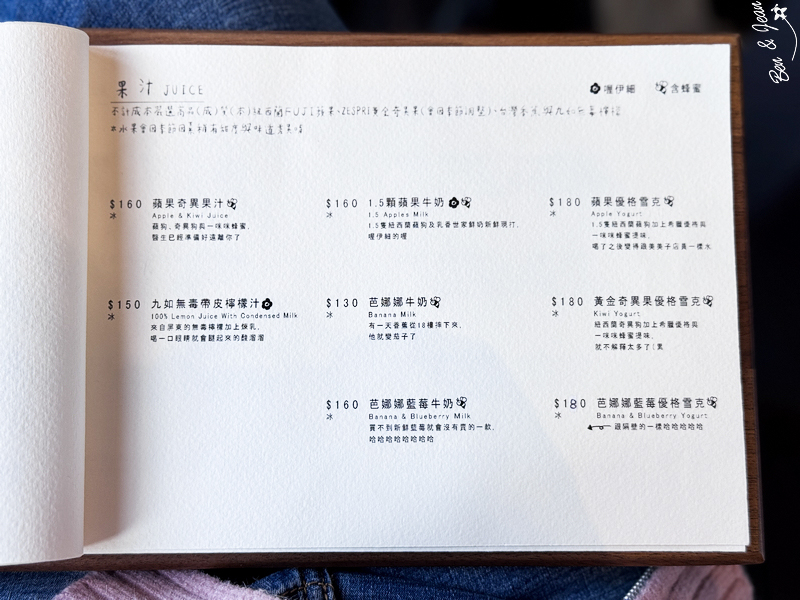 Ben & Jean
果汁 JUICE
喔伊細 含蜂蜜
不計成本嚴選高品(成)質(本)紐西蘭FUJI蘋果、ZESPRI黃金奇異果(會因季節調整)、台灣香蕉與九如無毒檸檬
*水果會因季節因素稍有甜度與味道差異唷
$160 蘋果奇異果汁
冰 Apple & Kiwi Juice
蘋狗、奇異狗與一咪咪蜂蜜,
醫生已經準備好遠離你了
$160 1.5顆蘋果牛奶
冰 1.5 Apples Milk
1.5隻紐西蘭蘋狗及乳香世家鮮奶新鮮現打,
喔伊細的喔
$180 蘋果優格雪克
冰 Apple Yogurt
1.5隻紐西蘭蘋狗加上希臘優格與
一咪咪蜂蜜提味,
喝了之後變得跟美美子店員一樣水
$150 九如無毒帶皮檸檬汁
冰 100% Lemon Juice With Condensed Milk
來自屏東的無毒檸檬加上煉乳,
喝一口眼睛就會瞇起來的酸溜溜
$130 芭娜娜牛奶
冰 Banana Milk
有一天香蕉從18樓摔下來,
他就變茄子了
$180 黃金奇異果優格雪克
冰 Kiwi Yogurt
紐西蘭奇異狗加上希臘優格與
一咪咪蜂蜜提味,
就不解釋太多了(累
$160 芭娜娜藍莓牛奶
冰 Banana & Blueberry Milk
買不到新鮮藍莓就會沒有賣的一款,
哈哈哈哈哈哈哈哈
$180 芭娜娜藍莓優格雪克
冰 Banana & Blueberry Yogurt
跟隔壁的一樣哈哈哈哈哈